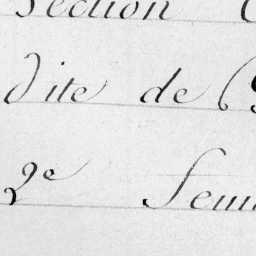 Section
dite de
2e Feuil